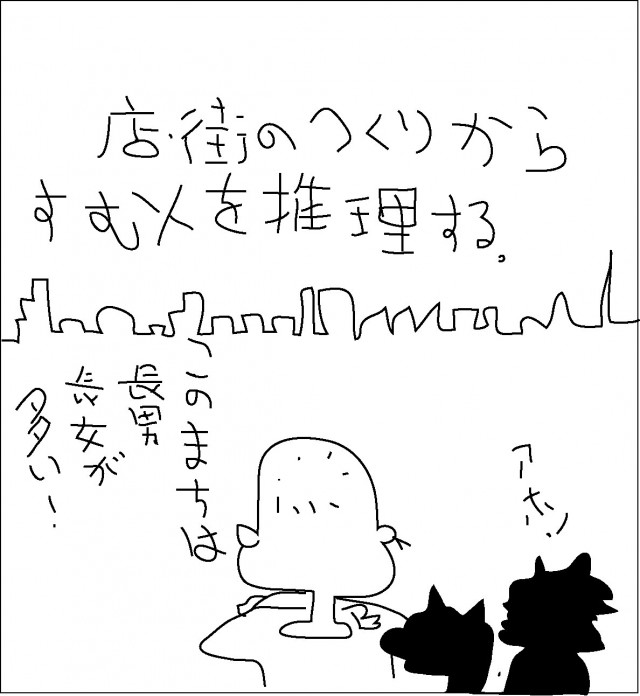 店・街のつくりから
すむ人を推理する。
このまちは
長男
長女が
多い!
アホン